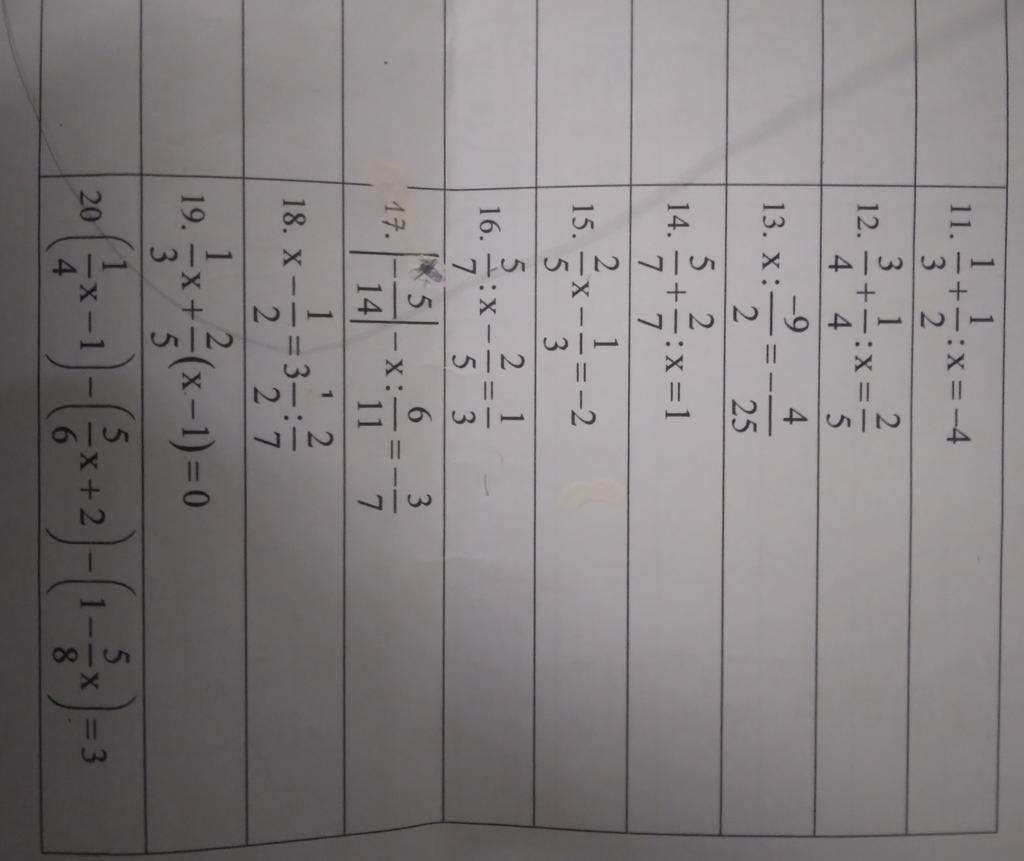 11. 1/3 + 1/2 : x = -4
12. 3/4 + 1/4 : x = 2/5
13. x : -9/2 = - 4/25
14. 5/7 + 2/7 : x = 1
15. 2/5 x - 1/3 = -2
16. 5/7 : x - 2/5 = 1/3
17. |- 5/14| - x : 6/11 = - 3/7
18. x - 1/2 = 3 1/2 : 2/7
19. 1/3 x + 2/5 (x - 1) = 0
20 (1/4 x - 1) - (5/6 x + 2) - (1 - 5/8 x) = 3